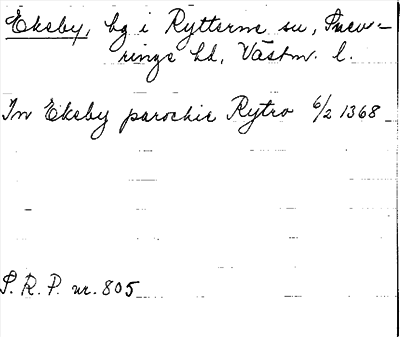 Ekeby, by i Rytterne sn, Snev-
ringe hd, Västm. l.
In Ekeby parochie Rytro 6/2 1368
S.R.P. nr. 805